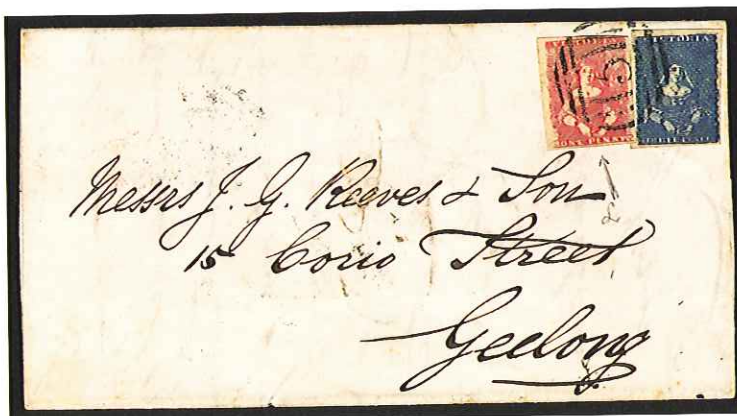 VICTORIA
ONE PENNY
VICTORIA
THREE PENCE
15
Messrs J. G. Reeves & Son
15 Corio Street
Geelong